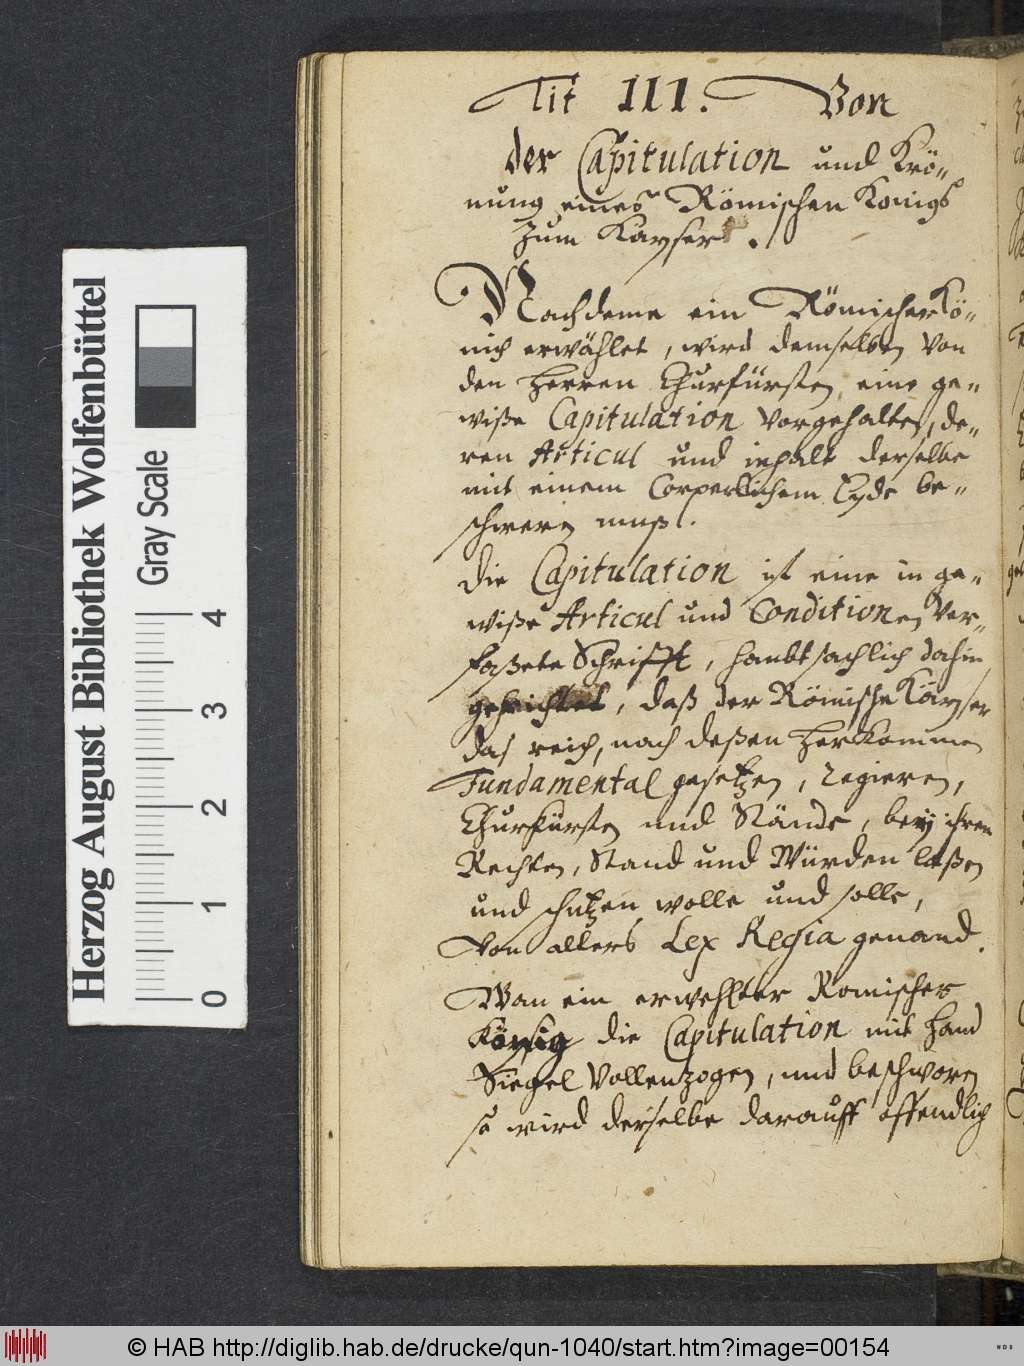 Tit III. Von
der Capitulation und Krö-
nung eines Römischen Konigs
zum Kayser.
Nachdeme ein Römischer Kö-
nich erwöhlet, wird demselben von
den Herren Churfürsten eine ge-
wiße Capitulation vorgehalten, de-
ren Articul und inhalt derselbe
mit einem Corperllichem Eyde be-
schweren muß.
Die Capitulation ist eine in ge-
wiße Articul und Conditionen ver-
faßete Schrifft, haubtsachlich dahin
gerichtet, daß der Römische Kayser
das reich, nach deßen Herkommen
Fundamental gesetzen, regieren,
Churfürsten und Stände, beÿ ihren
Rechten, Stand und Würden laßen
und schutzen wolle und solle,
von allers Lex Regia genand.
Wan ein erwehlter Romischer
König die Capitulation mit Hand
Siegel vollenzogen, und beschworen
so wird derselbe darauff offendlich
Herzog August Bibliothek Wolfenbüttel
Gray Scale
0 1 2 3 4
© HAB http://diglib.hab.de/drucke/qun-1040/start.htm?image=00154